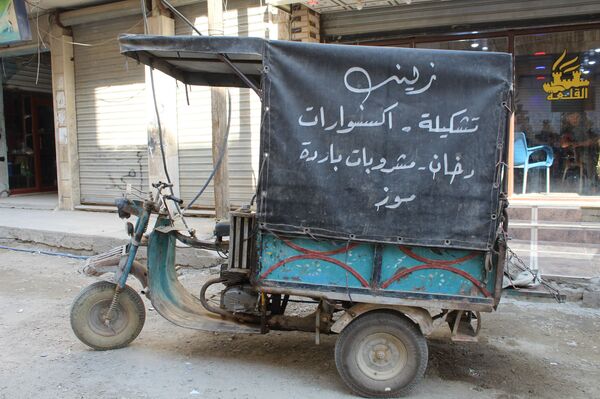 زينب
تشكيلة - اكسسوارات
دخان - مشروبات باردة
موز
القلعة